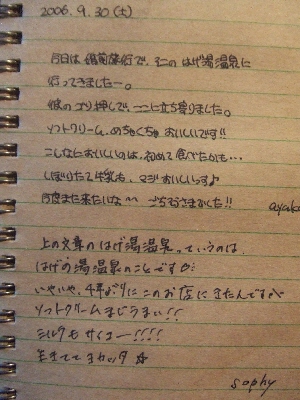 2006. 9. 30 (土)
今日は 婚前旅行で、そこの はげ湯温泉に
行ってきましたー。
彼の ゴリ押しで、ここに立ち寄りました。
ソフトクリーム、めちゃくちゃ おいしいです!!
こんなにおいしいのは、初めて 食べたかも…
しぼりたて牛乳も、マジおいしいっす♪
今度また来たいな〜 ごちそうさまでした!!
ayako
上の文章の はげ湯温泉、っていうのは、
はげの湯温泉のことです
いやいや、4年ぶりに このお店に きたんですが
ソフトクリーム まじうまい!!
ミルクも サイコー!!!!
生きてて ヨカッタ ☆
sophy